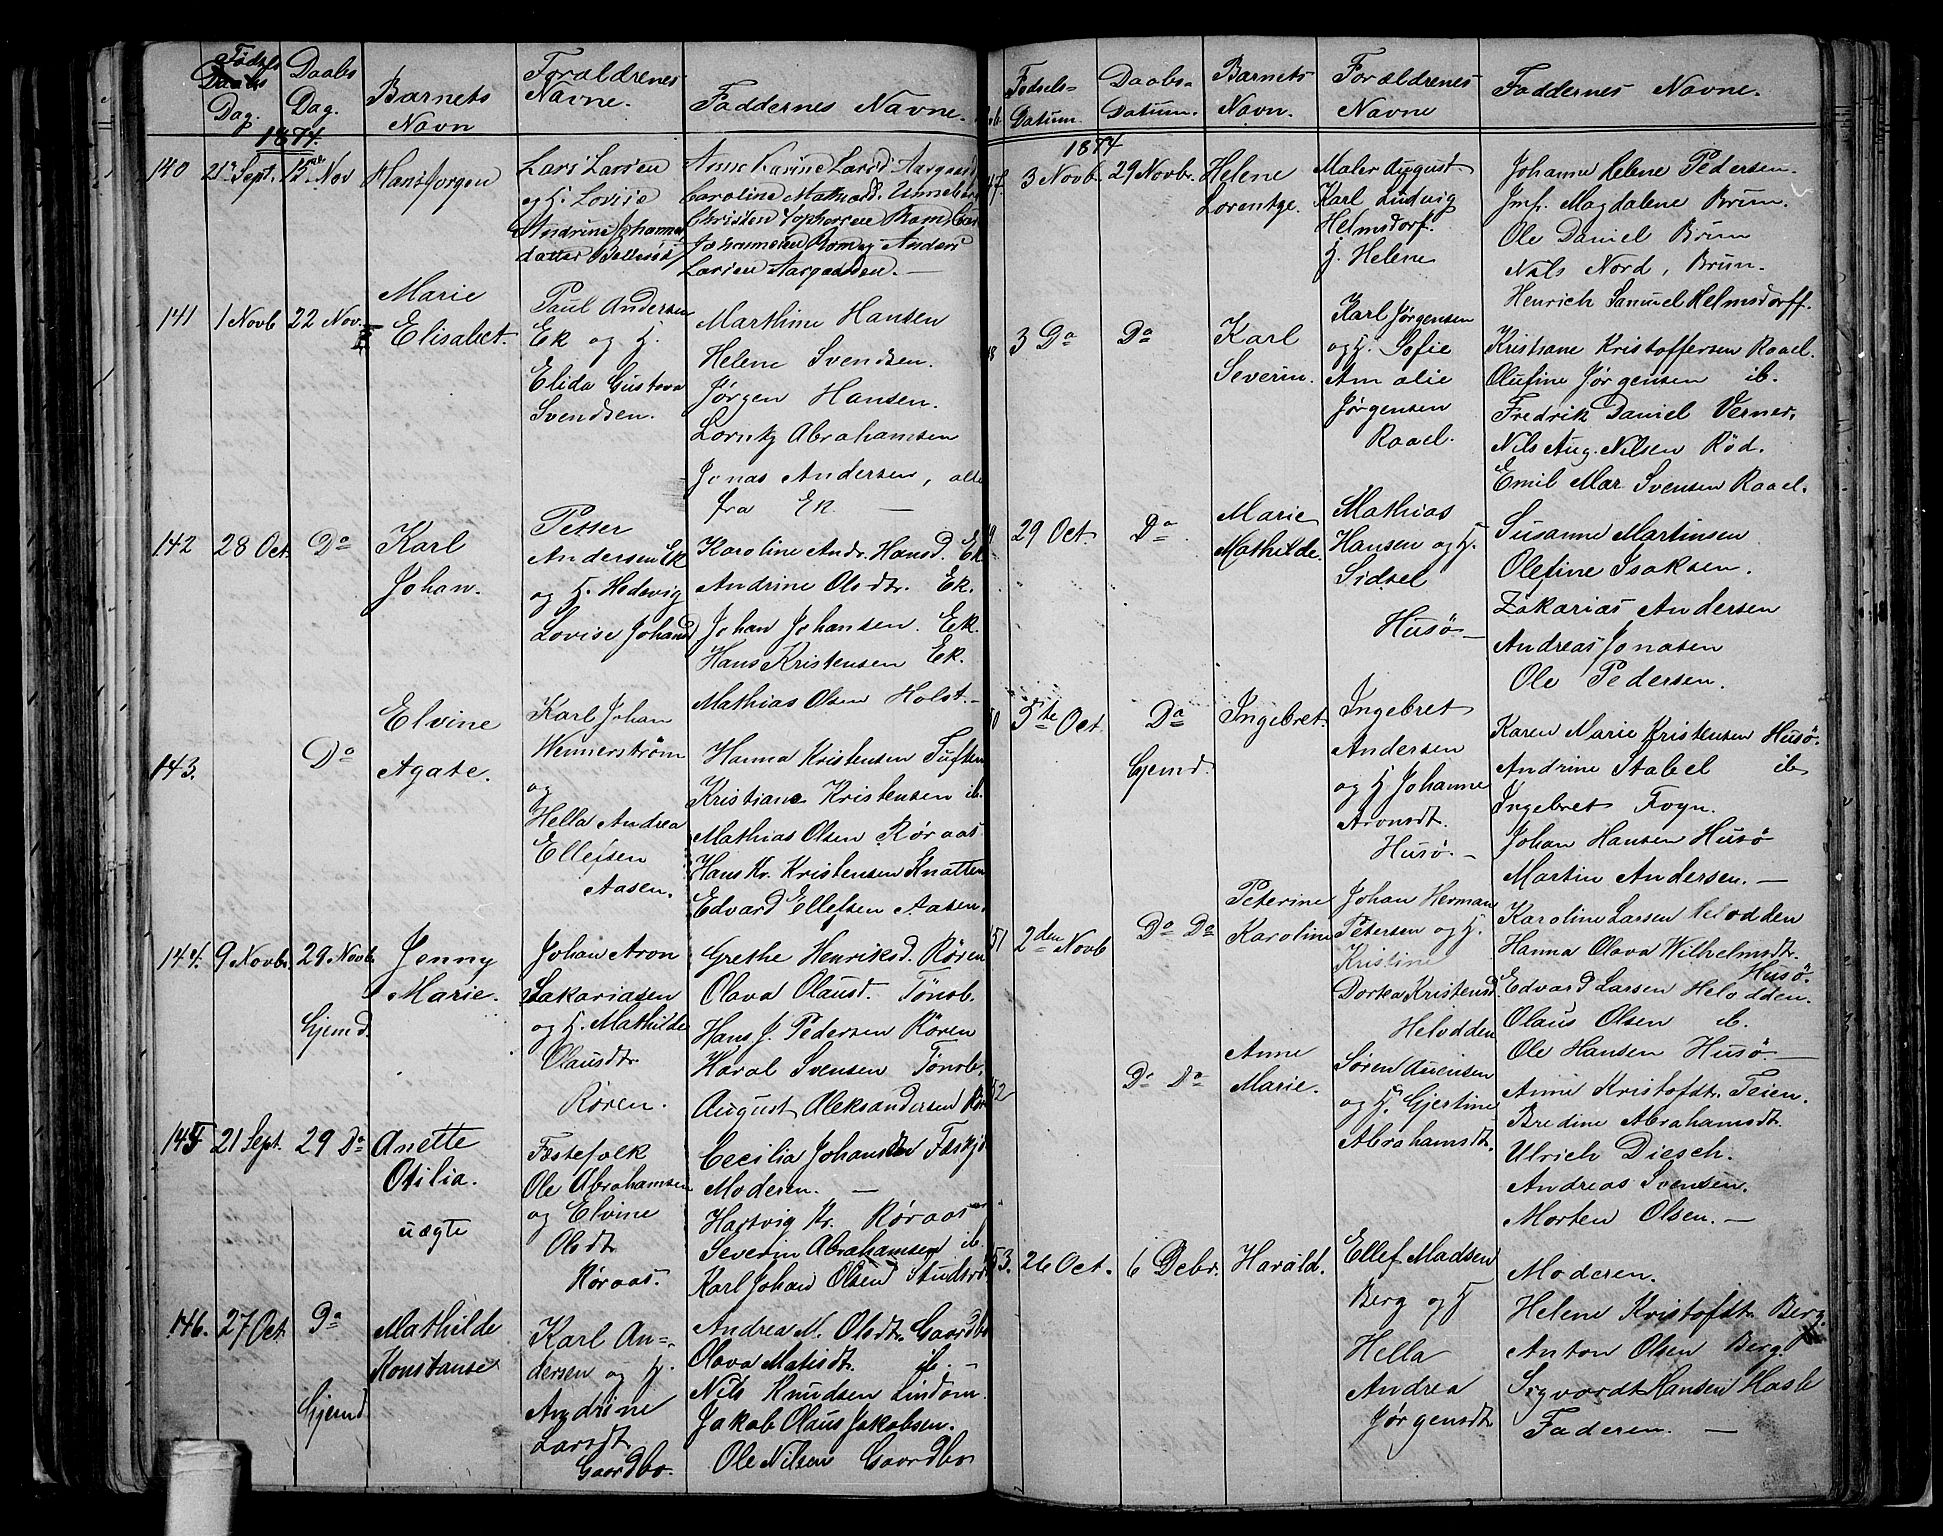 Fødsels Dag.
Daabs Dag.
Barnets Navn
Forældrenes Navne.
Faddernes Navne.
1874.
140 21 Sept. 15 Nov Hans Jørgen
Lars Larsen
og H. Lovise
Andrine Johannes
datter
Anne Karine Larsd.
Caroline
Christen
Johannesen Anders
Larsen
141 1 Novb 22 Nov. Marie
Elisabet.
Paul Andersen
Ek og H.
Elida Gustava
Svendsen.
Marthine Hansen
Helene Svendsen.
Jørgen Hansen.
Lorntz Abrahamsen
Jonas Andersen, alle
fra Ek —
142 28 Oct. Do Karl
Johan.
Petter
Andersen Ek
og H. Hedevig
Lovise Johansd
Karoline Andr. Hansd. Ek
Andrine Olsdtr. Ek.
Johan Johansen. Ek.
Hans Kristensen Ek.
Mathias Olsen Holst.
143. Do Elvine
Agate.
Karl Johan
Wennerstrøm
og
Hella Andrea
Ellefsen
Aasen.
Hanna Kristensen Tuften
Kristiane Kristensen ib.
Mathias Olsen Røraas
Hans Kr. Kristensen Knatten
Edvard Ellefsen Aasen.
144. 9 Novb. 29 Novb. Jenny
Marie.
Gjemd.
Johan Aron
Sakariasen
og H. Mathilde
Olausdtr.
Røren.
Grethe Henriksd. Røren
Olava Olausd. Tönsb.
Hans J. Pedersen Røren
Haral Svensen Tönsb.
August Oleksandersen Rør
145 21 Sept. 29 Do Anette
Otilia.
uægte
Festefolk
Ole Abrahamsen
og Elvine
Olsdt.
Røraas.
Cecilia Johansen
Moderen. —
Hartvig Kr. Røraas
Severin Abrahamsen ib.
Karl Johan Olsen
146. 27 Oct. Do Mathilde
Konstanse
Gjemd
Karl An-
dersen og H.
Andrine
Larsdt.
Gaardbo.
Andrea N. Olsdtr. Gaardbo
Olava Matisdt. ib. —
Nils Knudsen Lindom.
Jakob Olaus Jakobsen.
Ole Nilsen Gaardbo
Fødsels-Datum.
Daabs-Datum.
Barnets Navn.
Forældrenes Navne
Faddernes Navne.
1874
47. 3 Novb. 29 Novb. Helene
Lorentze.
Maler August
Karl Ludvig
Helmsdorf.
H. Helene
Johanne Helene Pedersen.
Jmf. Magdalene Brun.
Ole Daniel Brun
Nils Nord, Brun.
Henrich Samuel Helmsdorff.
48 3 Do Do Karl
Severin.
Karl Jørgensen
og H. Sofie
Amalie
Jørgensen
Raael.
Kristiane Kristoffersen Raael.
Olufine Jørgensen ib.
Fredrik Daniel Verner.
Nils Aug. Nilsen Röd.
Emil Mar Svensen Raael.
49 29 Oct. Do. Marie
Mathilde.
Mathias
Hansen og H.
Sidsel
Husö —
Susanne Martinsen
Olefine Isaksen.
Zakarias Andersen
Andreas Jonasen
Ole Pedersen.
50 5te Oct. Do Ingebret.
Gjemd.
Ingebret
Andersen
og H Johanne
Aronsdt.
Husö. —
Karen Marie Kristensen Husö.
Andrine Stabel ib
Ingebret Foyn.
Johan Hansen Husö
Martin Andersen. —
51 2den Novb Do Do Peterine
Karoline
Johan Herman
Petersen og H.
Kristine
Dorka Kristensd.
Helodden
Karoline Larsen Helodden
Hanna Olava Wilhelmsdt.
Husö.
Edvard Larsen Helodden.
Olaus Olsen ib.
Ole Hansen Husö. —
52 Do Do Anne
Marie.
Søren
og H. Gjertine
Abrahamsdt.
Anne Kristofdtr. Teien.
Bredine Abrahamsdt.
Ulrich Diesch.
Andreas Svensen.
Morten Olsen. —
53. 26 Oct. 6 Debr. Harald.
Ellef Madsen
Berg og H
Hella
Andrea
Jørgensdt
Moderen.
Helene Kristofdt. Berg.
Anton Olsen Berg.
Sigvardt Hansen Hasle
Faderen. —